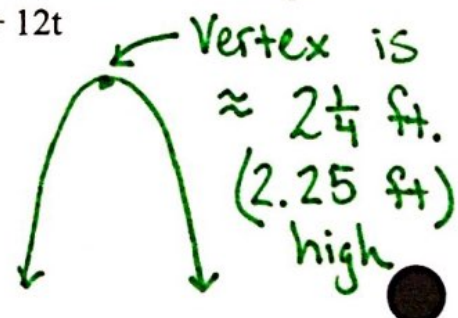 - 12t
Vertex is
≈ 2 1/4 ft.
(2.25 ft)
high